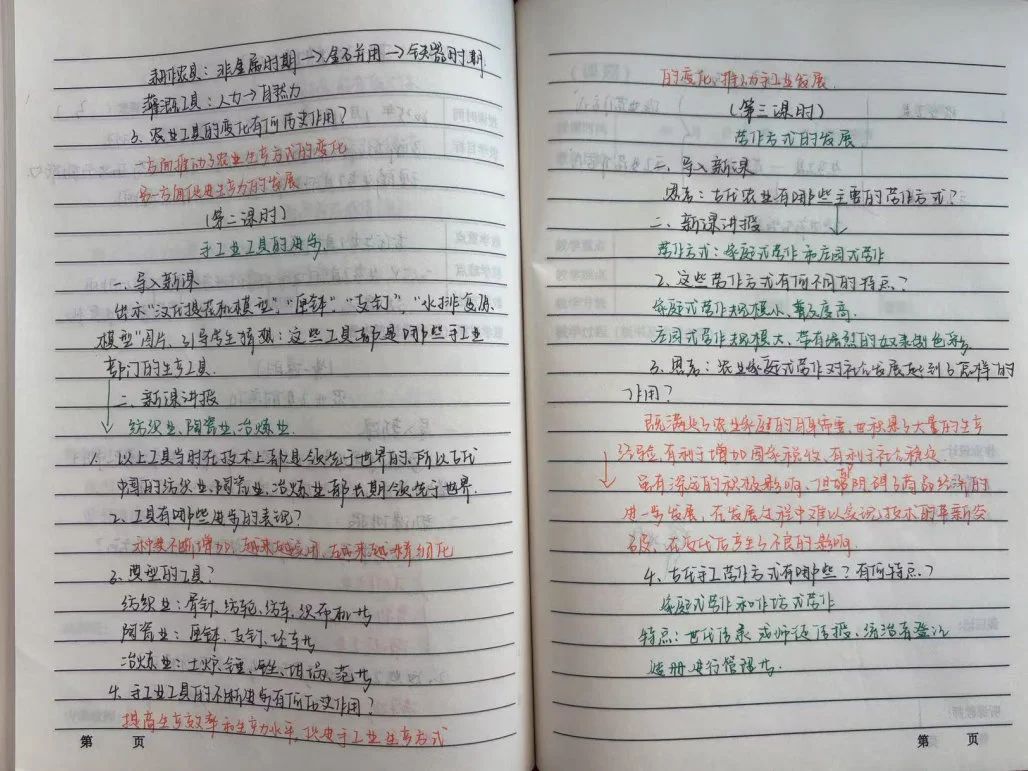 耕作农具：非金属时期→金石并用→铁器时期
灌溉工具：人力→自然力
3、农业工具的变化有何历史作用？
一方面推动了农业生产方式的变化
另一方面促进生产力的发展
(第二课时)
手工业工具的进步
一、导入新课
出示“汉代提花机模型”，“匣钵”，“支钉”，“水排复原
模型”图片，引导学生猜想：这些工具都是哪些手工业
部门的生产工具.
二、新课讲授
纺织业、陶瓷业、冶炼业.
1. 以上工具当时在技术上都是领先于世界的，所以古代
中国的纺织业、陶瓷业、冶炼业都长期领先于世界.
2、工具有哪些进步的表现？
种类不断增加，越来越实用，越来越精细化
3、典型的工具？
纺织业：骨针、纺轮、纺车、织布机等
陶瓷业：匣钵、支钉、坯车等
冶炼业：土炉、锤、坩埚、范等
4、手工业工具的不断进步有何历史作用？
提高生产效率和生产力水平，促进手工业生产方式
第 页
的变化，推动手工业发展.
(第三课时)
劳作方式的发展
一、导入新课
思考：古代农业有哪些主要的劳作方式？
二、新课讲授
劳作方式：家庭式劳作和庄园式劳作
2、这些劳作方式有何不同的特点？
家庭式劳作规模小、普及度高.
庄园式劳作规模大、带有强烈的奴隶制色彩
3、思考：农业家庭式劳作对社会发展起到了怎样的
作用？
既满足了农业家庭的自身需要，也积累了大量的生产
经验，有利于增加国家税收，有利于社会稳定.
虽有深远的积极影响，但也阻碍了商品经济的
进一步发展，在发展过程中难以实现技术的革新
在近代后产生了不良的影响.
4、古代手工劳作方式有哪些？有何特点？
家庭式劳作和作坊式劳作
特点：世代传承或师徒传授、统治者登记
造册进行管理等.
第 页